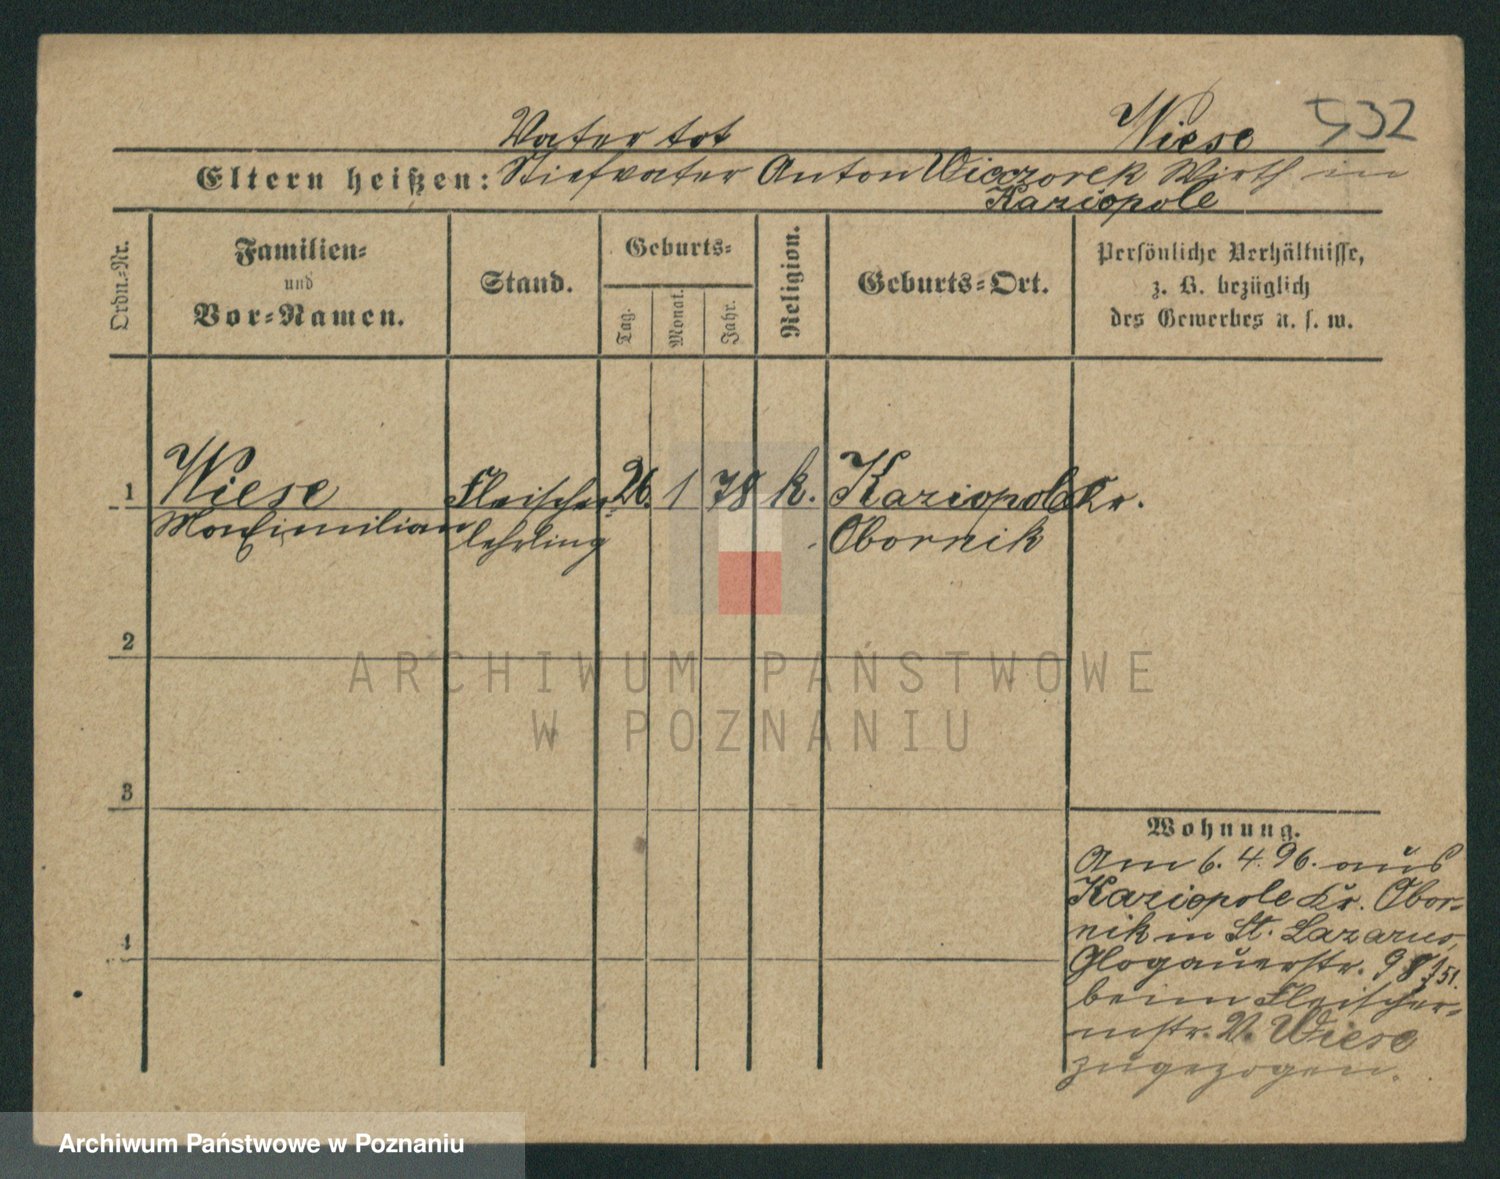 Vater tot Wiese 532
Eltern heißen: Stiefvater Anton Wieczorek Wirth in
Kaziopole
Ordn.-Nr.
Familien-
und
Vor-Namen.
Stand.
Geburts-
Tag.
Monat.
Jahr.
Religion.
Geburts-Ort.
Persönliche Verhältnisse,
z. B. bezüglich
des Gewerbes u. s. w.
1 Wiese Fleischer- 26. 1 78 k. Kaziopole Kr.
Maximilian lehrling Obornik
2
ARCHIWUM PAŃSTWOWE
W POZNANIU
3
Wohnung.
Am 6. 4. 96. aus
Kaziopole Kr. Obor-
nik in St. Lazarus,
4
Glogauerstr. 98
beim Fleischer-
mstr. V. Wiese
zugezogen.
Archiwum Państwowe w Poznaniu